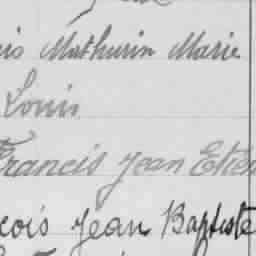 is Mathurin Marie
Louis
Francis Jean Etien
cois Jean Baptiste